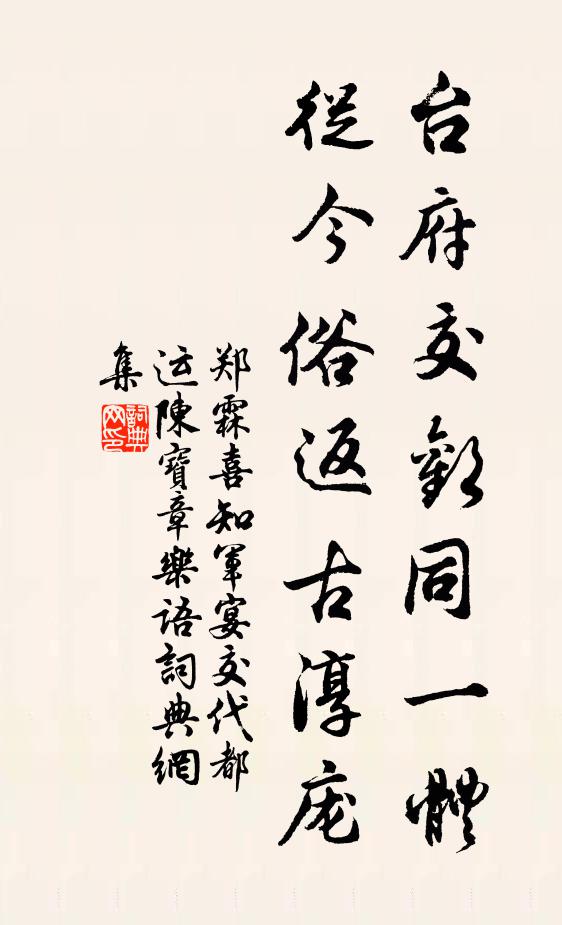 台府交歡同一體
從今俗返古淳庬
郑霖喜知軍宴交代都
运陳寶章樂語詞典網
集
詞典网印